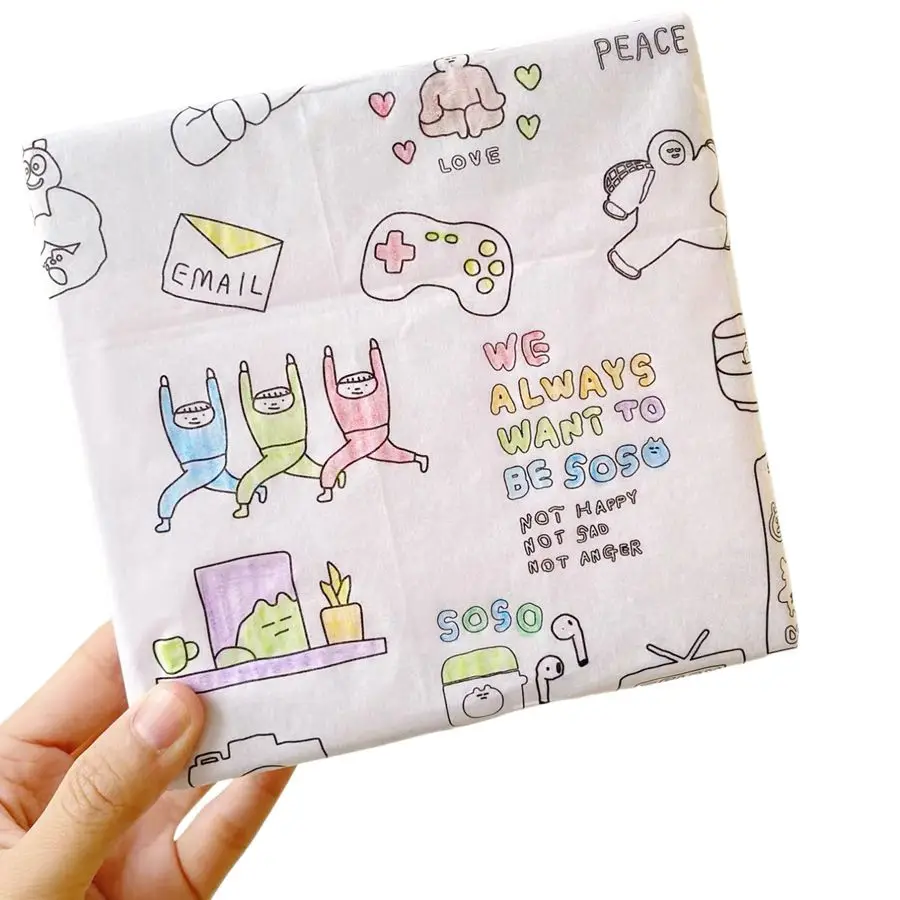 PEACE
LOVE
EMAIL
WE
ALWAYS
WANT TO
BE SOSO
NOT HAPPY
NOT SAD
NOT ANGER
SOSO